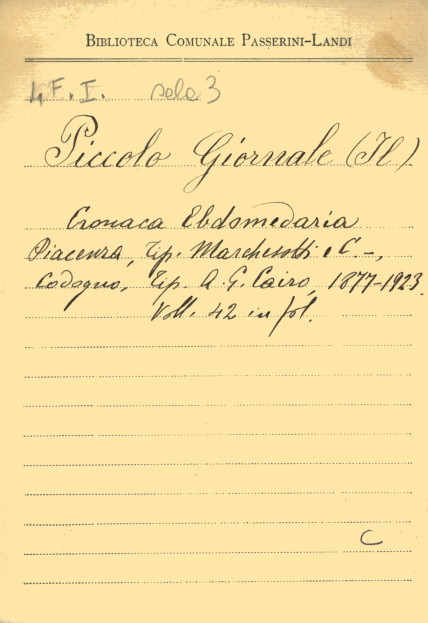 BIBLIOTECA COMUNALE PASSERINI-LANDI
4. F. I. sala 3
Piccolo Giornale (Il)
Cronaca Ebdomedaria
Piacenza, Tip. Marchesotti e C. -,
Codogno, Tip. A. G. Cairo, 1877-1923.
Voll. 42 in fol.
C